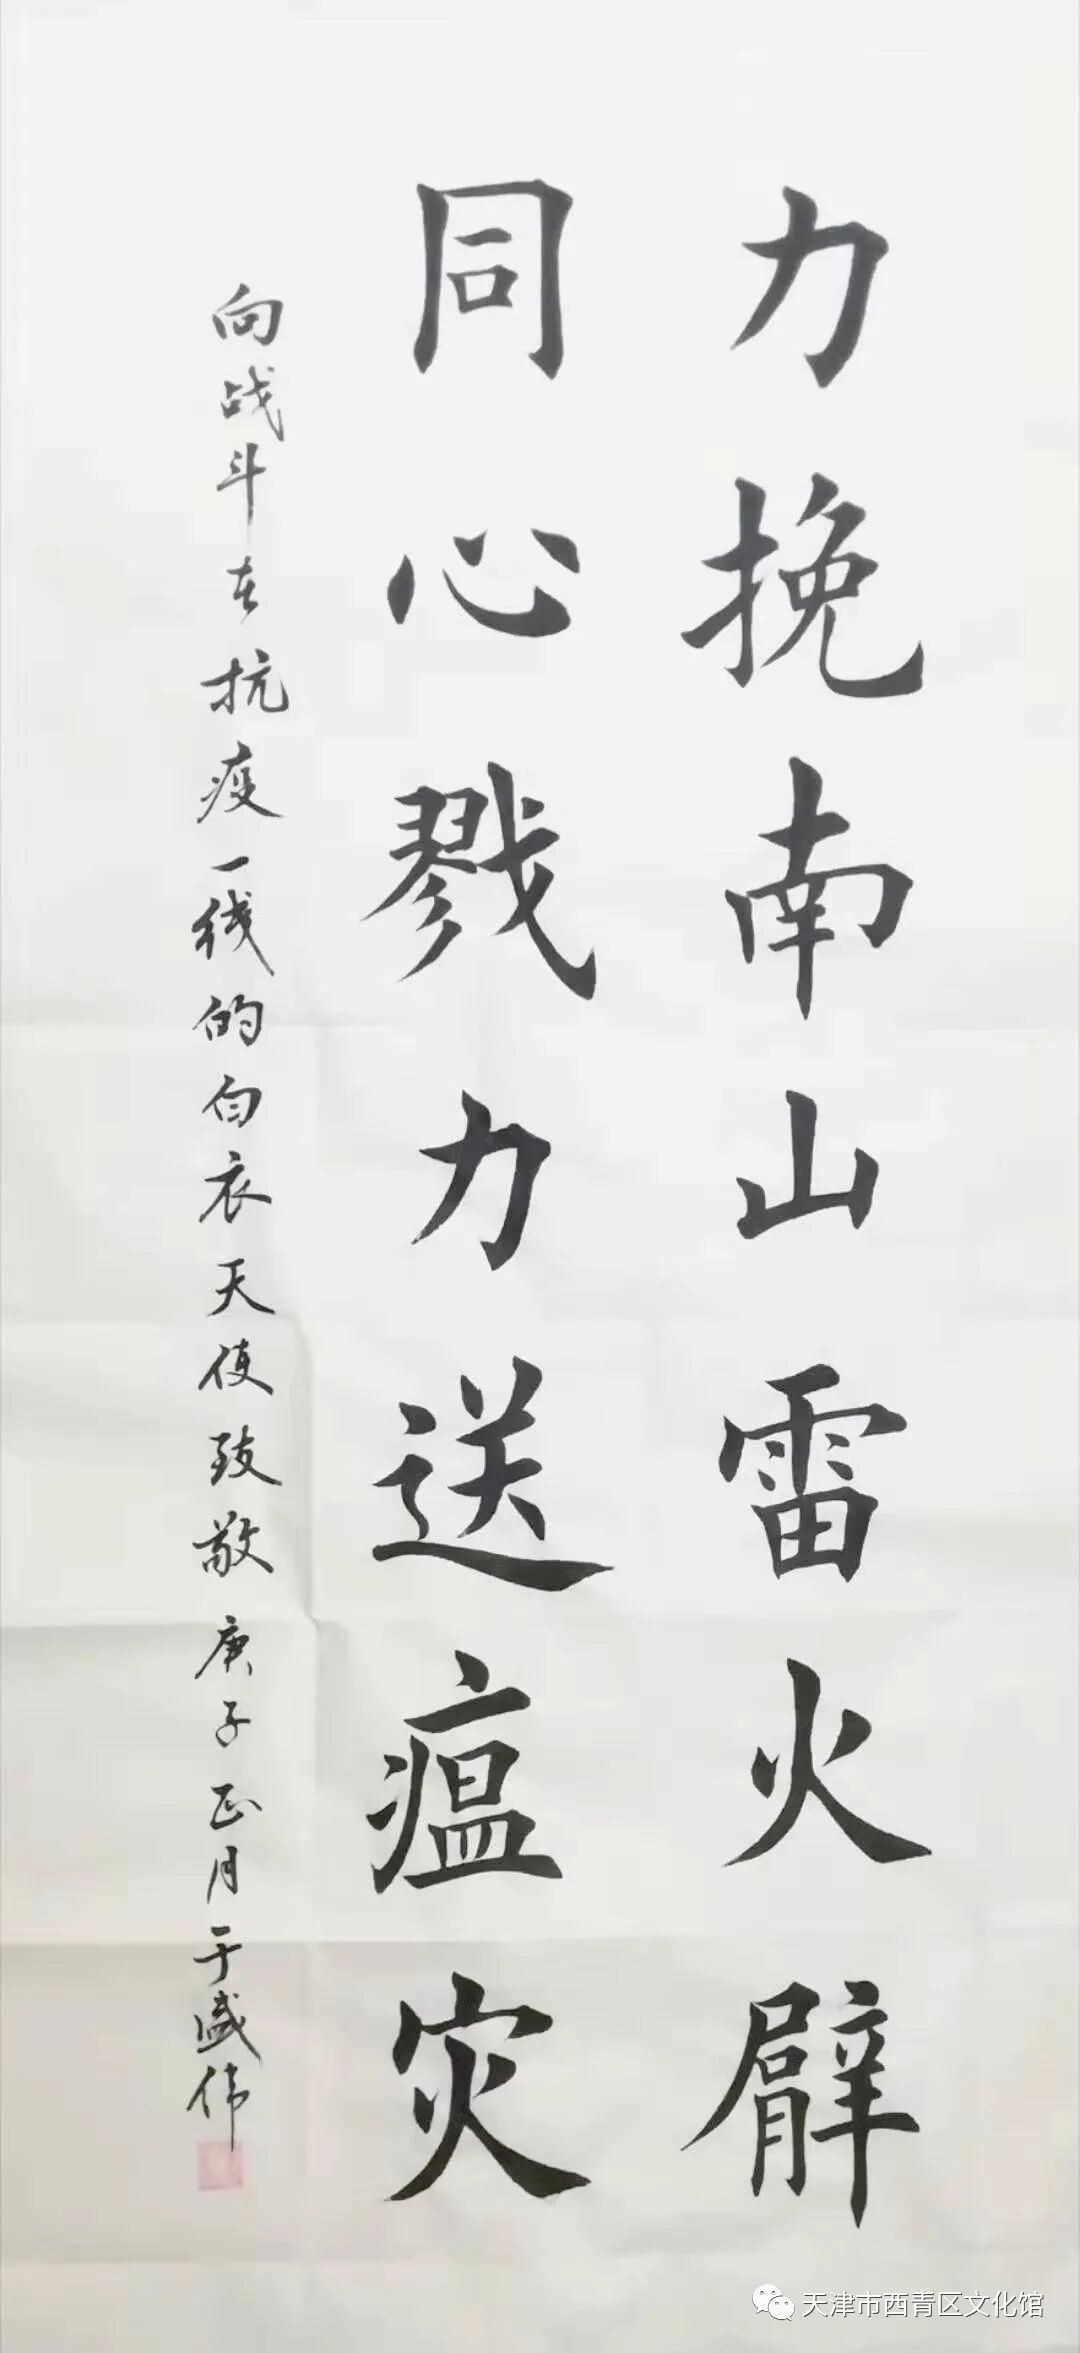 力挽南山雷火臂
同心戮力送瘟灾
向战斗在抗疫一线的白衣天使致敬庚子正月于盛伟
天津市西青区文化馆